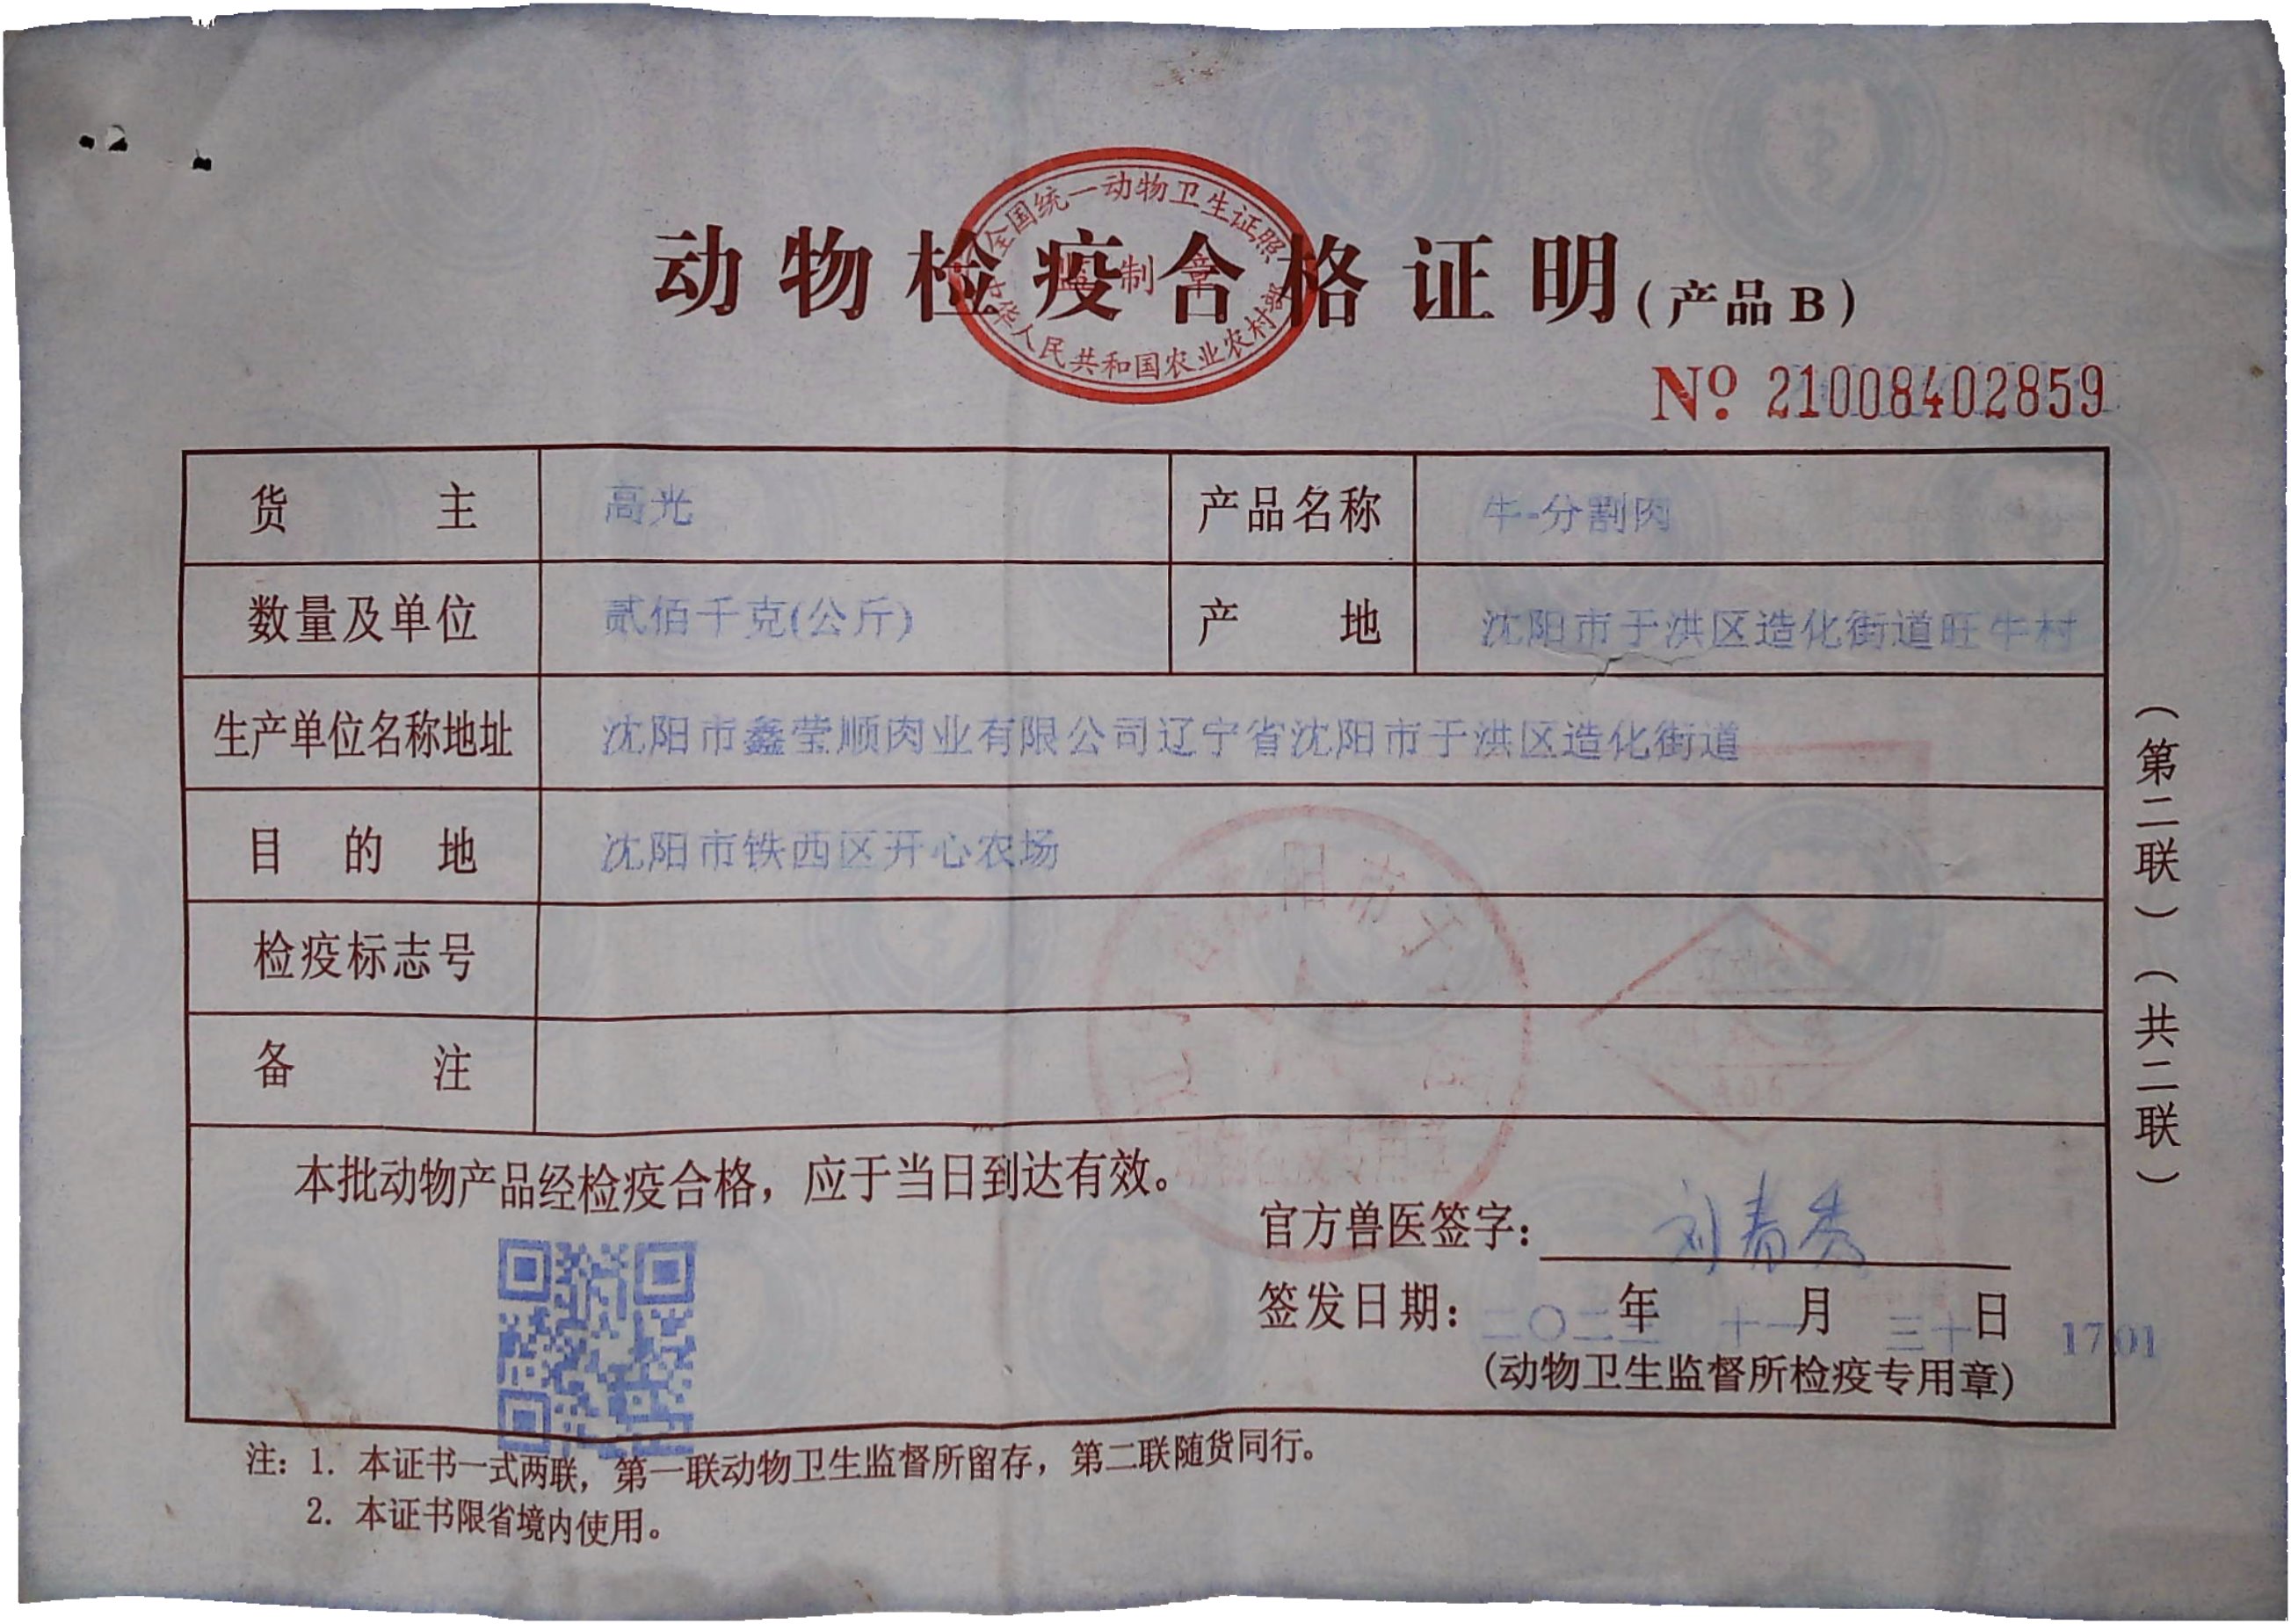 全国统一动物卫生证照
监制章
中华人民共和国农业农村部
动物检疫合格证明(产品B)
No. 21008402859
货主 高光 产品名称 牛-分割肉
数量及单位 贰佰千克(公斤) 产地 沈阳市于洪区造化街道旺牛村
生产单位名称地址 沈阳市鑫莹顺肉业有限公司辽宁省沈阳市于洪区造化街道
目的地 沈阳市铁西区开心农场
检疫标志号
备注
本批动物产品经检疫合格，应于当日到达有效。
官方兽医签字： 刘春秀
签发日期： 年 十一月 三十日 17 01
(动物卫生监督所检疫专用章)
注：1. 本证书一式两联，第一联动物卫生监督所留存，第二联随货同行。
2. 本证书限省境内使用。
（第二联）（共二联）